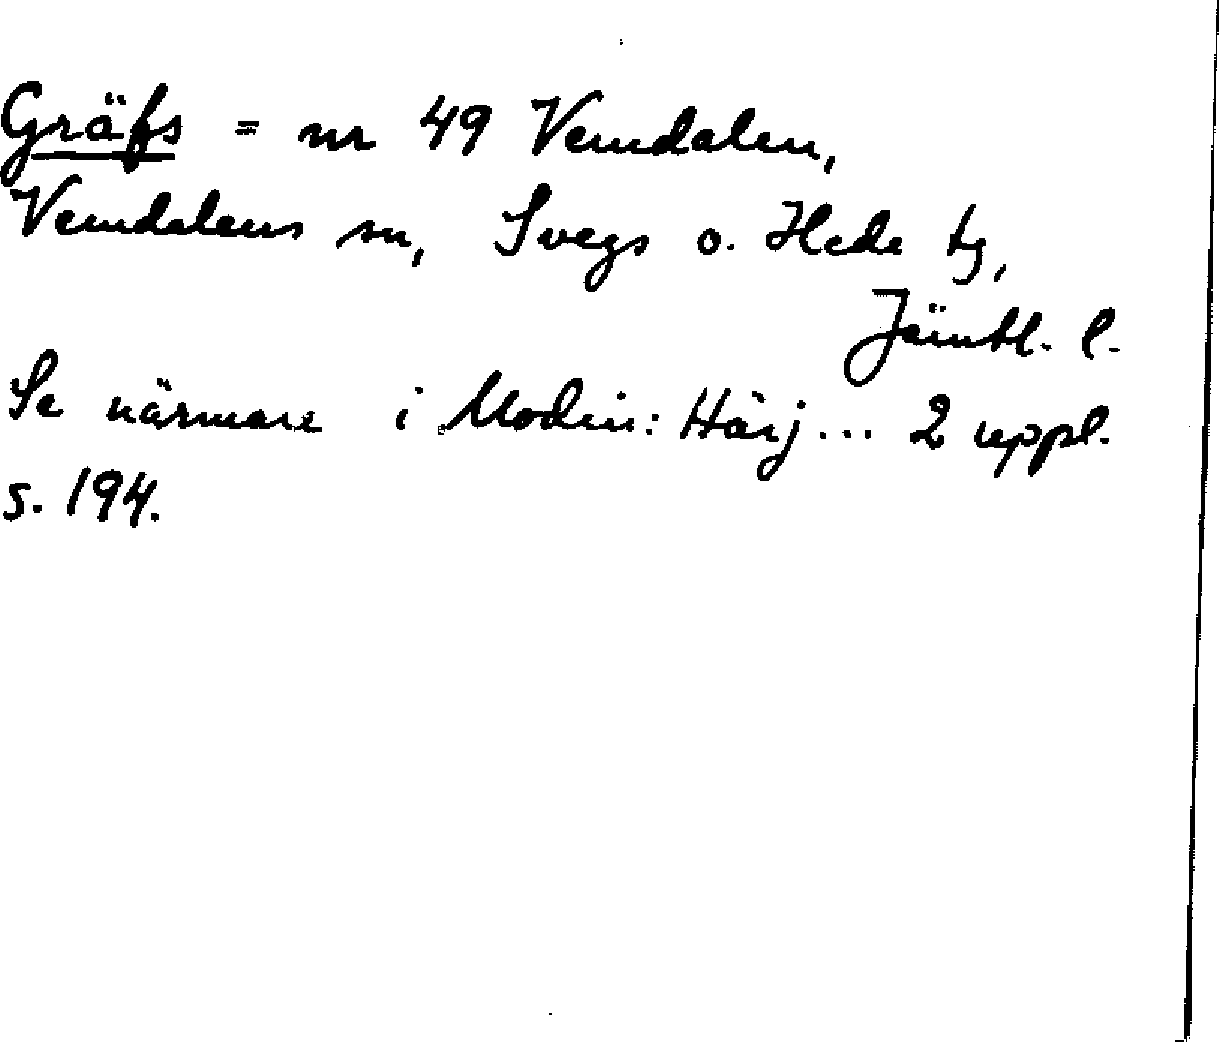 Gräfs = nr 49 Vemdalen,
Vemdalens sn, Svegs o. Hede tg,
Jämtl. l.
Se närmare i Modin: Härj... 2 uppl.
s. 194.